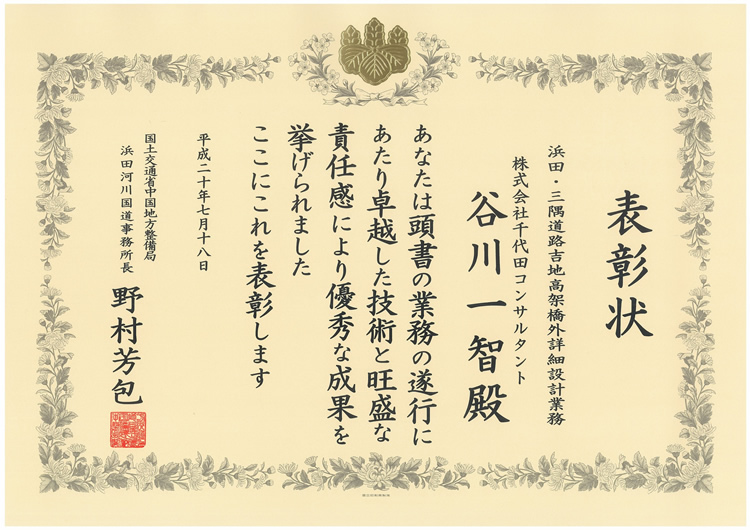 表彰状
浜田・三隅道路吉地高架橋外詳細設計業務
株式会社千代田コンサルタント
谷川一智殿
あなたは頭書の業務の遂行に
あたり卓越した技術と旺盛な
責任感により優秀な成果を
挙げられました
ここにこれを表彰します
平成二十年七月十八日
国土交通省中国地方整備局
浜田河川国道事務所長
野村芳包